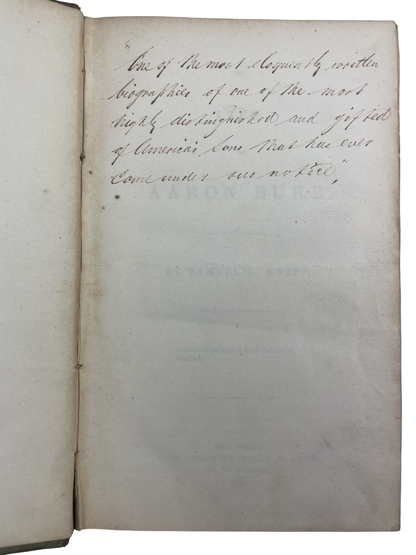 "One of the most eloquently written
biographies of one of the most
highly distinguished and gifted
of America's Sons that has ever
come under our notice",
AARON BURR
BY SAMUEL L. KNAPP